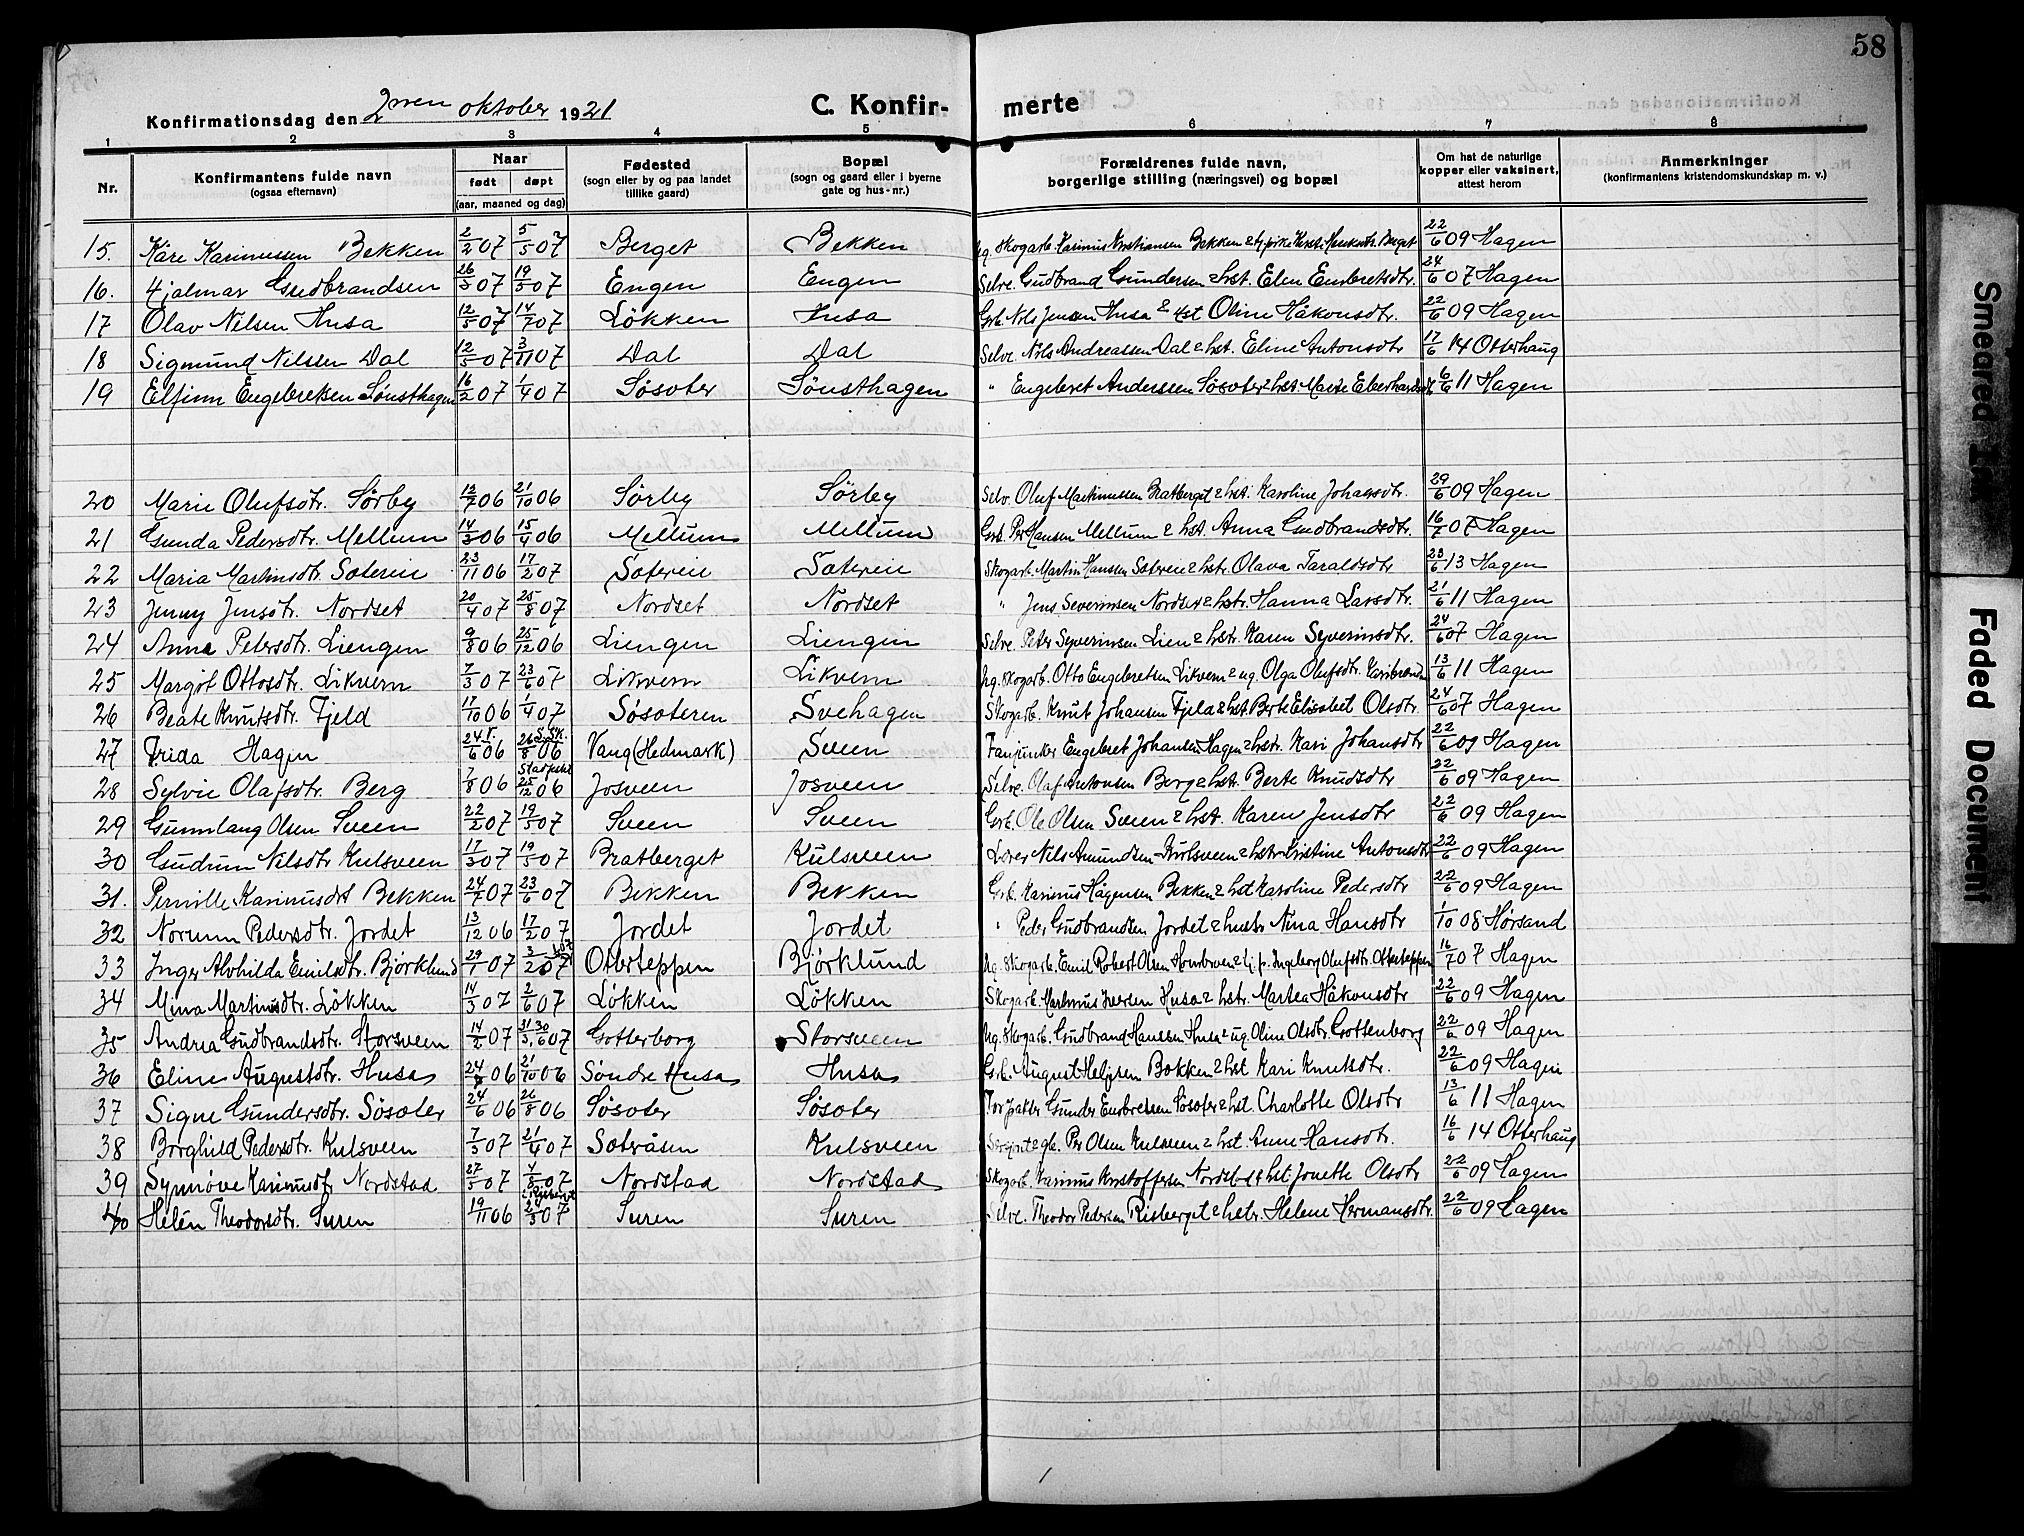 58
Konfirmationsdag den 2nen oktober 1921 C. Konfir- merte
1 2 3 4 5 6 7 8
Nr. Konfirmantens fulde navn (ogsaa efternavn) Naar født døpt (aar, maaned og dag) Fødested (sogn eller by og paa landet tillike gaard) Bopæl (sogn og gaard eller i byerne gate og hus-nr.) Forældrenes fulde navn, borgerlige stilling (næringsvei) og bopæl Om hat de naturlige kopper eller vaksinert, attest herom Anmerkninger (konfirmantens kristendomskundskap m. v.)
15. Kåre Karinussen Bekken 2/2 07 5/5 07 Berget Bekken Ug. Skogarb. Karinus Kristiansen Bekken & Berget 22/6 09 Hagen
16. Hjalmar Gudbrandsen 26/3 07 19/5 07 Engen Engen Selve. Gudbrand Gundersen & hst. Elen Embretsdtr. 24/6 07 Hagen
17 Olav Nilsen Husa 12/5 07 14/7 07 Løkken Husa Grb. Nils Jensen Husa & hst Oline Håkonsdtr. 22/6 09 Hagen
18 Sigmund Nilsen Dal 12/5 07 3/11 07 Dal Dal Selve. Nils Andreassen Dal & hst. Eline Antonsdtr 17/6 14 Otterhaug
19 Elfinn Engebretsen Sønsthagen 16/2 07 1/4 07 Søsæter Sønsthagen " Engebret Anderssen Søsæter & hst. Marte Eberhardsdtr 6/6 11 Hagen
20 Marie Olufsdtr. Sørby 12/7 06 21/10 06 Sørby Sørby Selv. Oluf Martinussen Bratberget & hst. Karoline Johansdtr. 29/6 09 Hagen
21 Gunda Pedersdtr. Mellum 14/3 06 15/4 06 Mellum Mellum Grb. Per Hansen Mellum & hst. Anna Gudbrandsdtr. 16/7 07 Hagen
22 Maria Martinsdtr. Sæteren 23/11 06 17/2 07 Sæteren Sæteren Skogarb. Martin Hansen Sæteren & hstr. Olava Taraldsdtr 23/6 13 Hagen
23 Jenny Jensdtr. Nordset 20/4 07 25/8 07 Nordset Nordset " Jens Severinsen Nordset & hstr. Hanna Larsdtr. 21/6 11 Hagen
24 Anna Petersdtr. Liengen 9/8 06 25/12 06 Liengen Liengen Selve. Peter Syverinsen Lien & hstr. Karen Syverinsdtr. 24/6 07 Hagen
25 Margot Ottosdtr. Likvern 7/3 07 23/6 07 Likvern Likvern Ug. Skogarb. Otto Engebretsen Likvern & ug. Olga Olufsdtr. 13/6 11 Hagen
26 Beate Knutsdtr. Fjeld 17/10 06 1/4 07 Søsæteren Svehagen Skogarb. Knut Johansen Fjeld & hst. Berte Elisabet Olsdtr. 24/6 07 Hagen
27 Frida Hagen 24/6 06 26/8 06 Vang (Hedmark) Sveen Fanjunker Engebret Johansen Hagen & hstr. Kari Johansdtr 22/6 09 Hagen
28 Sylvie Olafsdtr. Berg 7/8 06 25/12 06 Josveen Josveen Selve. Olaf Antonsen Berg & hst. Berte Knudsdtr 22/6 09 Hagen
29 Gunnlaug Olsen Sveen 22/2 07 19/5 07 Sveen Sveen Grb. Ole Olsen Sveen & hst. Karen Jensdtr 22/6 09 Hagen
30 Gudrun Nilsdtr Kulsveen 17/3 07 19/5 07 Bratberget Kulsveen Lærer Nils Amundsen Kulsveen & hstr Kristine Antonsdtr 22/6 09 Hagen
31. Pernille Karinusdtr Bekken 24/2 07 23/6 07 Bekken Bekken Grb. Karinus Hågensen Bekken & hst Karoline Pedersdtr 22/6 09 Hagen
32 Norunn Pedersdtr. Jordet 13/12 06 17/2 07 Jordet Jordet " Peder Gudbrandsen Jordet & hustr Nina Hansdtr 1/10 08 Hørsand
33 Inger Alvhilda Emilsdtr. Bjørklund 29/1 07 3/2 07 Otterteppen Bjørklund Ug. Skogarb. Emil Robert Olsen Ingeborg Olufsdtr. Otterteppen 16/7 07 Hagen
34 Mina Martinusdtr. Løkken 14/3 07 2/6 07 Løkken Løkken Skogarb. Martinus Iversen Husa & hstr. Martea Håkonsdtr 22/6 09 Hagen
35 Andrea Gudbrandsdtr. Storsveen 14/2 07 31/3, 30/6 07 Gotterborg Storsveen Ug. Skogarb. Gudbrand Hansen Husa & ug. Oline Olsdtr. Gottenborg 22/6 09 Hagen
36 Eline Augustsdtr. Husa 24/8 06 21/10 06 Søndre Husa Husa Grb. August Helgesen Bakken & hst Kari Knutsdtr. 22/6 09 Hagen
37 Signe Gundersdtr. Søsæter 24/6 06 26/8 06 Søsæter Søsæter Forpakter Gunder Embretsen Søsæter & hst Charlotte Olsdtr 13/6 11 Hagen
38 Borghild Pedersdtr. Kulsveen 7/3 07 21/4 07 Sæteråsen Kulsveen Per Olsen Kulsveen & hst. Anne Hansdtr. 16/6 14 Otterhaug
39 Synnøve Karinusdtr Nordstad 27/5 07 4/8 07 Nordstad Nordstad Skogarb. Karinus Kristoffersen Nordstad & hst Jonette Olsdtr 22/6 09 Hagen
40 Helén Theodorsdtr. Suren 19/11 06 24/3 07 Suren Suren Selve. Theodor Pedersen Risberget & hstr. Helene Hermansdtr. 22/6 09 Hagen
Smeared Ink
Faded Document